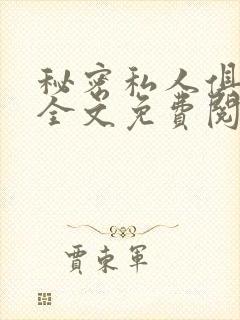 秘密私人俱
全文免费阅
贾东军